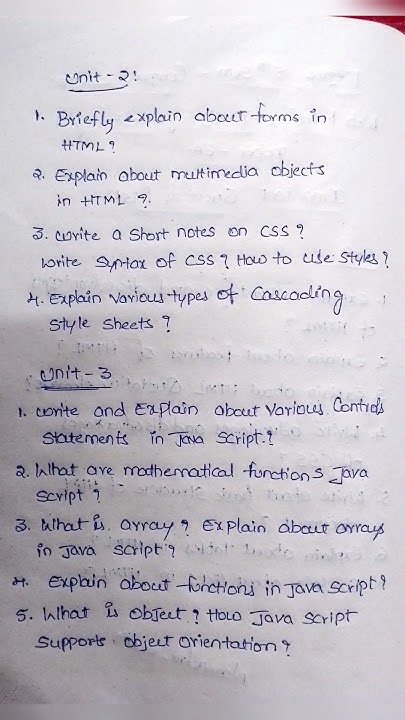 Unit - 2!
1. Briefly explain about forms in
HTML?
2. Explain about multimedia objects
in HTML ?
3. Write a short notes on CSS?
Write Syntax of CSS? How to use styles?
4. Explain various types of Cascading
Style sheets?
Unit - 3
1. Write and Explain about various Controls
Statements in Java Script?
2. What are mathematical functions Java
Script?
3. What is array? Explain about arrays
in Java Script?
4. Explain about functions in Java Script?
5. What is object? How Java Script
Supports object orientation?